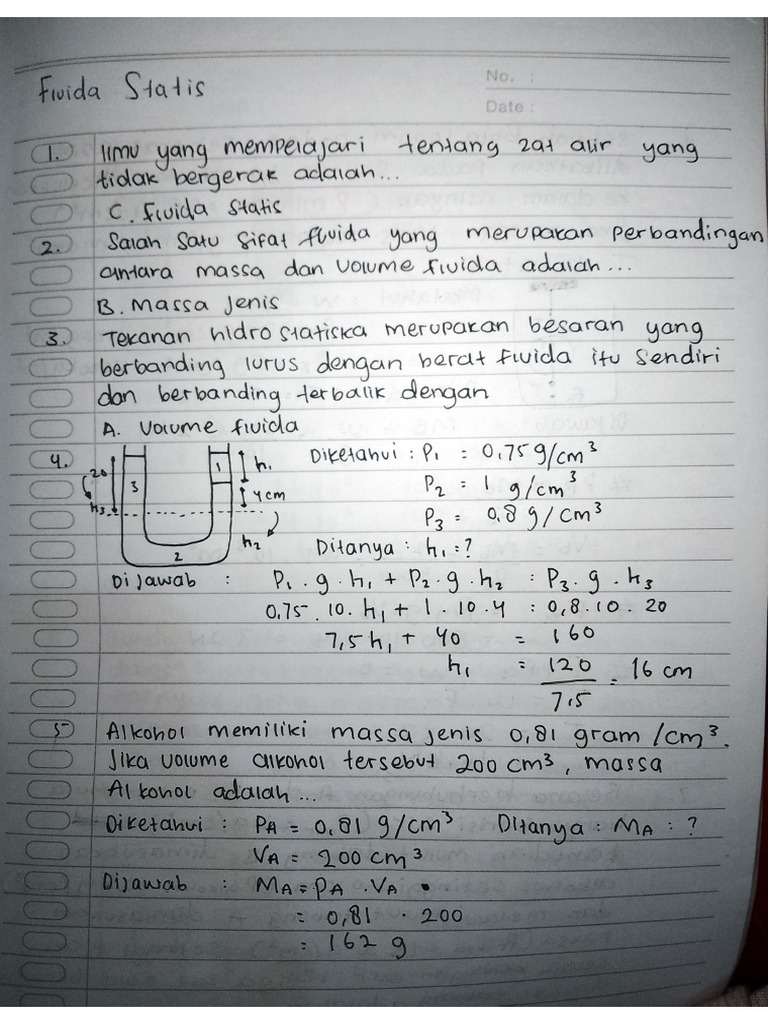 Fluida Statis
No. :
Date :
1. Ilmu yang mempelajari tentang zat alir yang
tidak bergerak adalah...
C. Fluida Statis
2. Salah Satu Sifat fluida yang merupakan perbandingan
antara massa dan Volume fluida adalah...
B. Massa Jenis
3. Tekanan hidrostatiska merupakan besaran yang
berbanding lurus dengan berat fluida itu Sendiri
dan berbanding terbalik dengan
A. Volume fluida
4. 20 h3 3 1 h1 4 cm h2 2
Diketahui : P1 = 0,75 g/cm³
P2 = 1 g/cm³
P3 = 0,8 g/cm³
Ditanya : h1 = ?
Dijawab : P1 . g . h1 + P2 . g . h2 : P3 . g . h3
0,75 . 10 . h1 + 1 . 10 . 4 : 0,8 . 10 . 20
7,5 h1 + 40 = 160
h1 = 120 / 7,5 = 16 cm
5 Alkohol memiliki massa jenis 0,81 gram /cm³.
Jika volume alkohol tersebut 200 cm³, massa
Alkohol adalah ...
Diketahui : PA = 0,81 g/cm³ Ditanya : MA : ?
VA = 200 cm³
Dijawab : MA = PA . VA
= 0,81 . 200
= 162 g